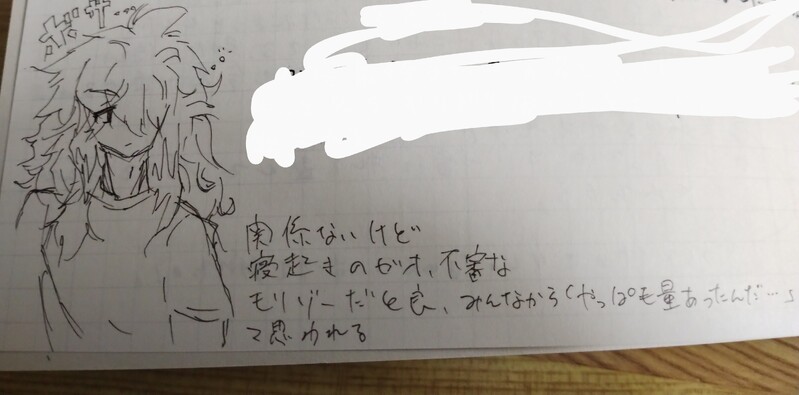 ボサ…
関係ないけど
寝起きのガオ、不審な
モリゾーだと良、みんなから「やっぱ毛量あったんだ…」
て思われる